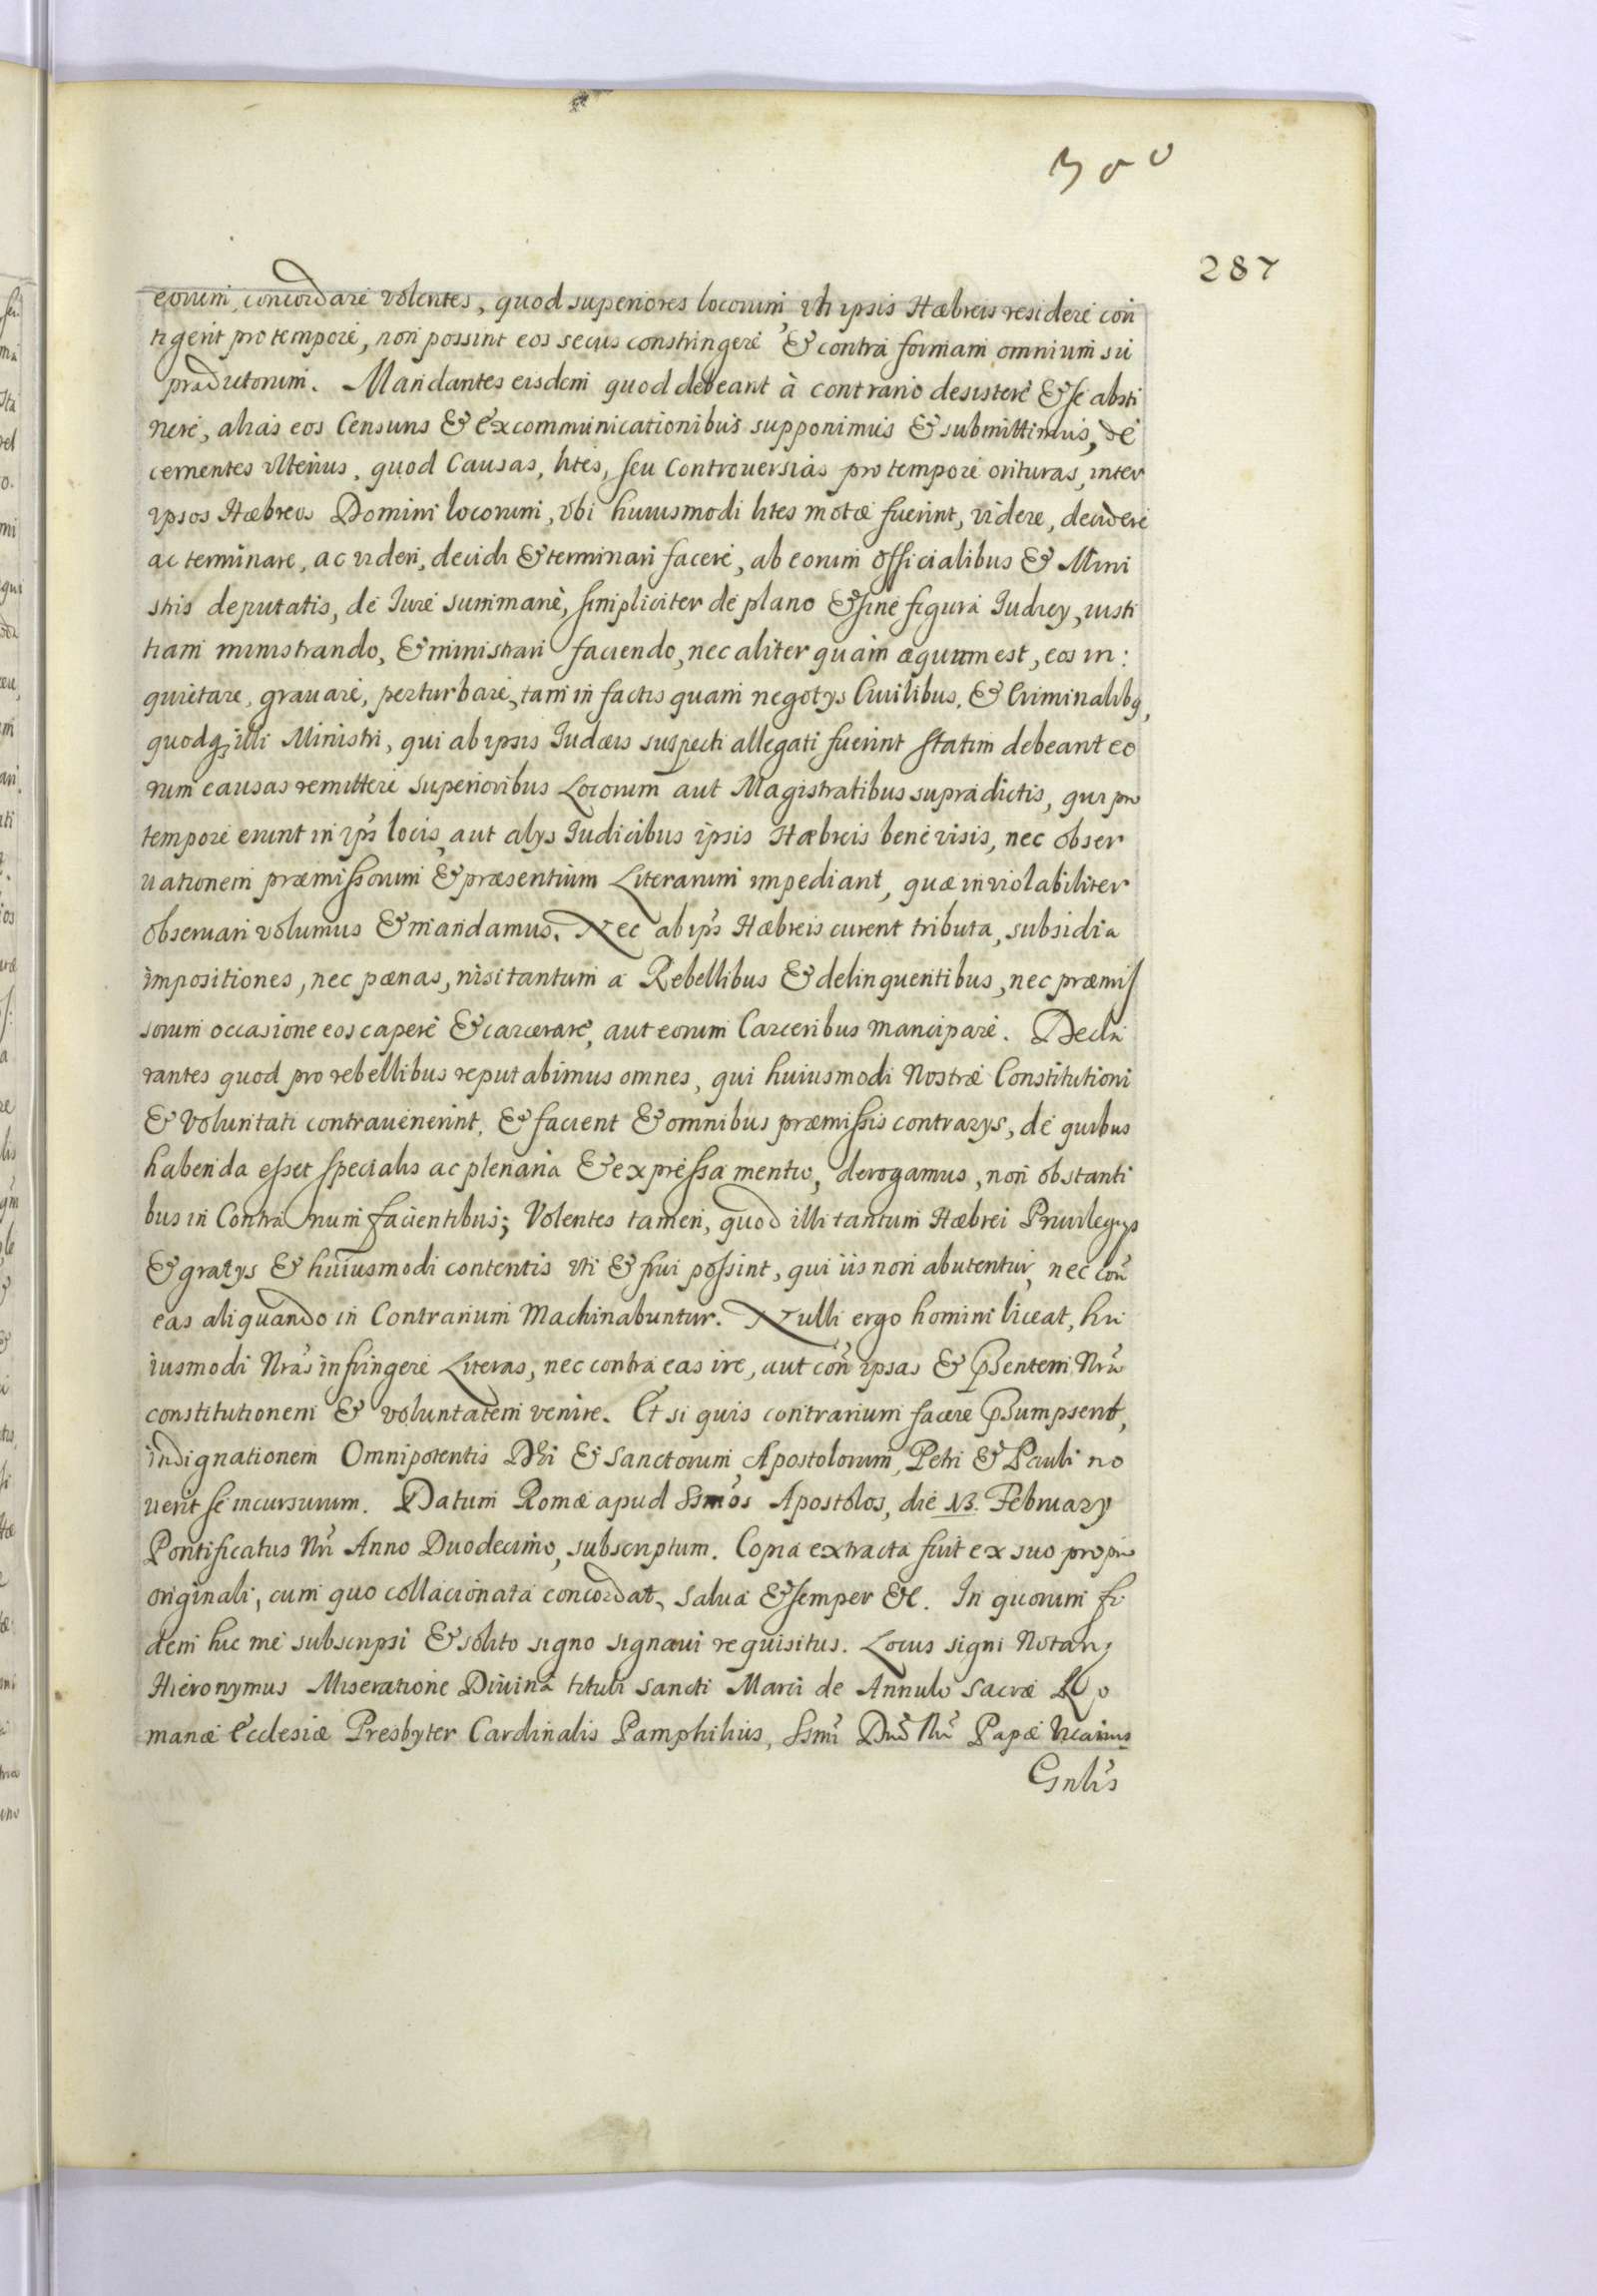 300
287
eorum, concordare volentes, quod superiores locorum, vti ipsis Hæbreis residere con
tigerit pro tempore, non possint eos secus constringere & contra formam omnium su
pradictorum. Mandantes eisdem quod debeant à contrario desistere & se absti
nere, alias eos Censuris & excommunicationibus supponimus & submittimus, de
cernentes vlterius, quod Causas, lites, seu Controuersias pro tempore orituras, inter
ipsos Hæbreos Domini locorum, vbi huiusmodi lites motæ fuerint, videre, decidere
ac terminare, ac videri, decidi & terminari facere, ab eorum officialibus & Mini
stris deputatis, de Iure summariè, simpliciter de plano & sine figura Iudicy, iusti
tiam ministrando, & ministrari faciendo, nec aliter quam æquum est, eos in:
quietare, grauare, perturbare, tam in factis quam negotys Ciuilibus, & Criminalibq,
quodq; illi Ministri, qui ab ipsis Iudæis suspecti allegati fuerint statim debeant eo
rum causas remittere superioribus Locorum aut Magistratibus supradictis, qui pro
tempore erunt in ip̃s locis, aut alys Iudicibus ipsis Hæbreis bene visis, nec obser
uationem præmissorum & præsentium Literarum impediant, quæ inviolabiliter
obseruari volumus & mandamus. Nec ab ip̃s Hæbreis curent tributa, subsidia
impositiones, nec pœnas, nisi tantum a Rebellibus & delinquentibus, nec præmis
sorum occasione eos capere & carcerare, aut eorum Carceribus mancipare. Decla
rantes quod pro rebellibus reputabimus omnes, qui huiusmodi Nostræ Constitutioni
& Voluntati contrauenerint, & facient & omnibus præmissis contrarys, de quibus
habenda esset specialis ac plenaria & expressa mentio, derogamus, non obstanti
bus in Contrarium facientibus; Volentes tamen, quod illi tantum Hæbrei Priuilegys
& gratys & huiusmodi contentis vti & frui possint, qui iis non abutentur, nec con̄
eas aliquando in Contrarium Machinabuntur. Nulli ergo homini liceat, hu
iusmodi Nrãs infringere Literas, nec contra eas ire, aut con̄ ipsas & p̃sentem Nrã
constitutionem & voluntatem venire. Et si quis contrarium facere p̃sumpserit,
indignationem Omnipotentis Dei & Sanctorum, Apostolorum, Petri & Pauli no
uerit se incursurum. Datum Romæ apud SSm̃os Apostolos, die 13. February
Pontificatus Nr̃i Anno Duodecimo, subscriptum. Copia extracta fuit ex suo proprio
originali, cum quo collacionata concordat, salua & semper &c. In quorum fi
dem hic me subscripsi & solito signo signaui requisitus. Locus signi Notary
Hieronymus Miseratione Diuina tituli Sancti Marci de Annulo Sacræ Ro
manæ Ecclesiæ Presbyter Cardinalis Pamphilius, SSm̃i Dñi Nr̃i Papæ Vicarius
Gnlĩs